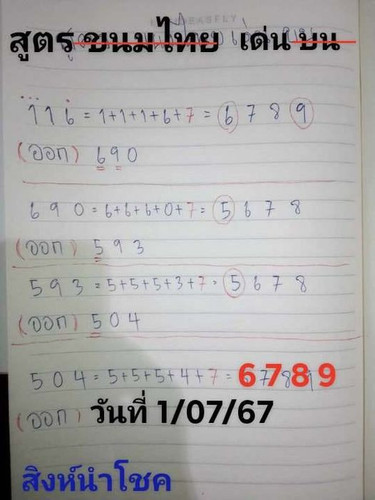 สูตร ขนมไทย เด่น บน
116 = 1+1+1+6+7 = 6 7 8 9
(ออก) 690
690 = 6+6+6+0+7 = 5 6 7 8
(ออก) 593
593 = 5+5+5+3+7 = 5 6 7 8
(ออก) 504
504 = 5+5+5+4+7 = 6789
(ออก) วันที่ 1/07/67
สิงห์นำโชค